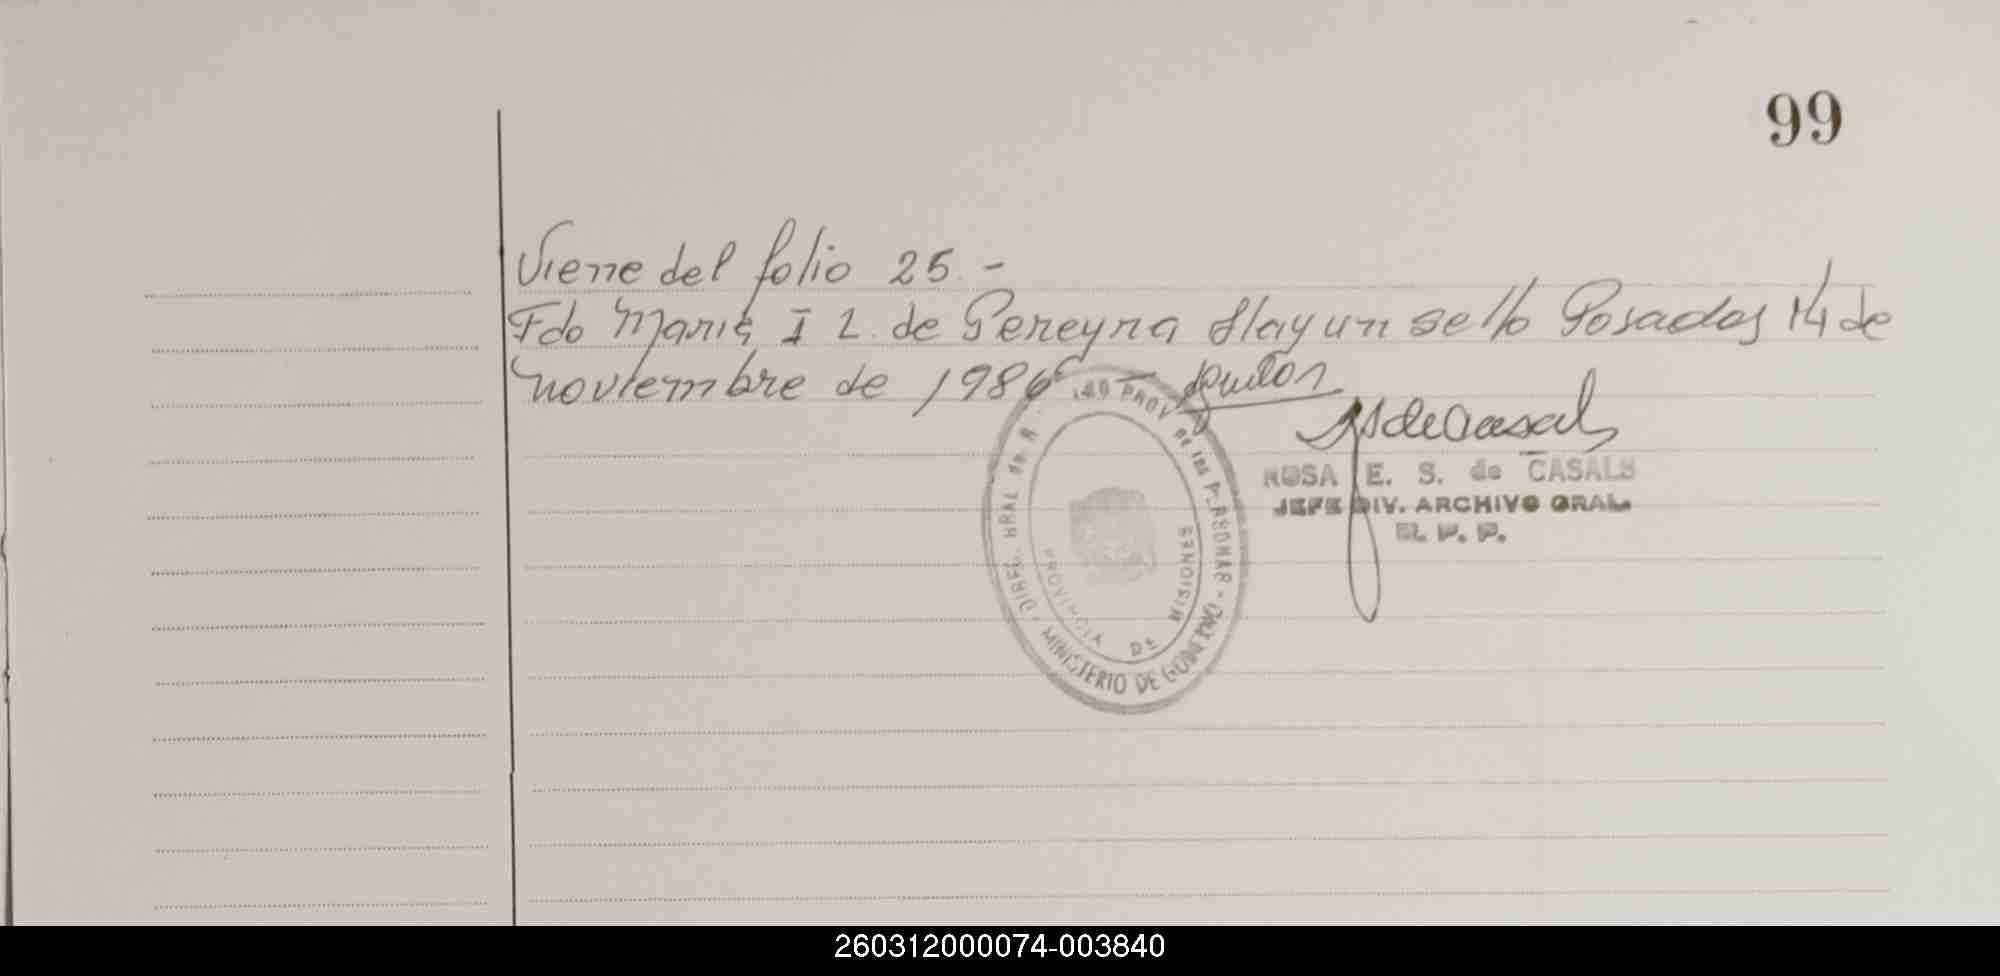 99
Viene del folio 25.-
Fdo Maria I L. de Pereyra Hay un sello Posadas 14 de
noviembre de 1986 -
ROSA E. S. de CASALS
JEFE DIV. ARCHIVO GRAL.
R. P. P.
DIREC. GRAL de R. PROV de las PERSONAS - MINISTERIO DE GOBIERNO
PROVINCIA DE MISIONES
260312000074-003840